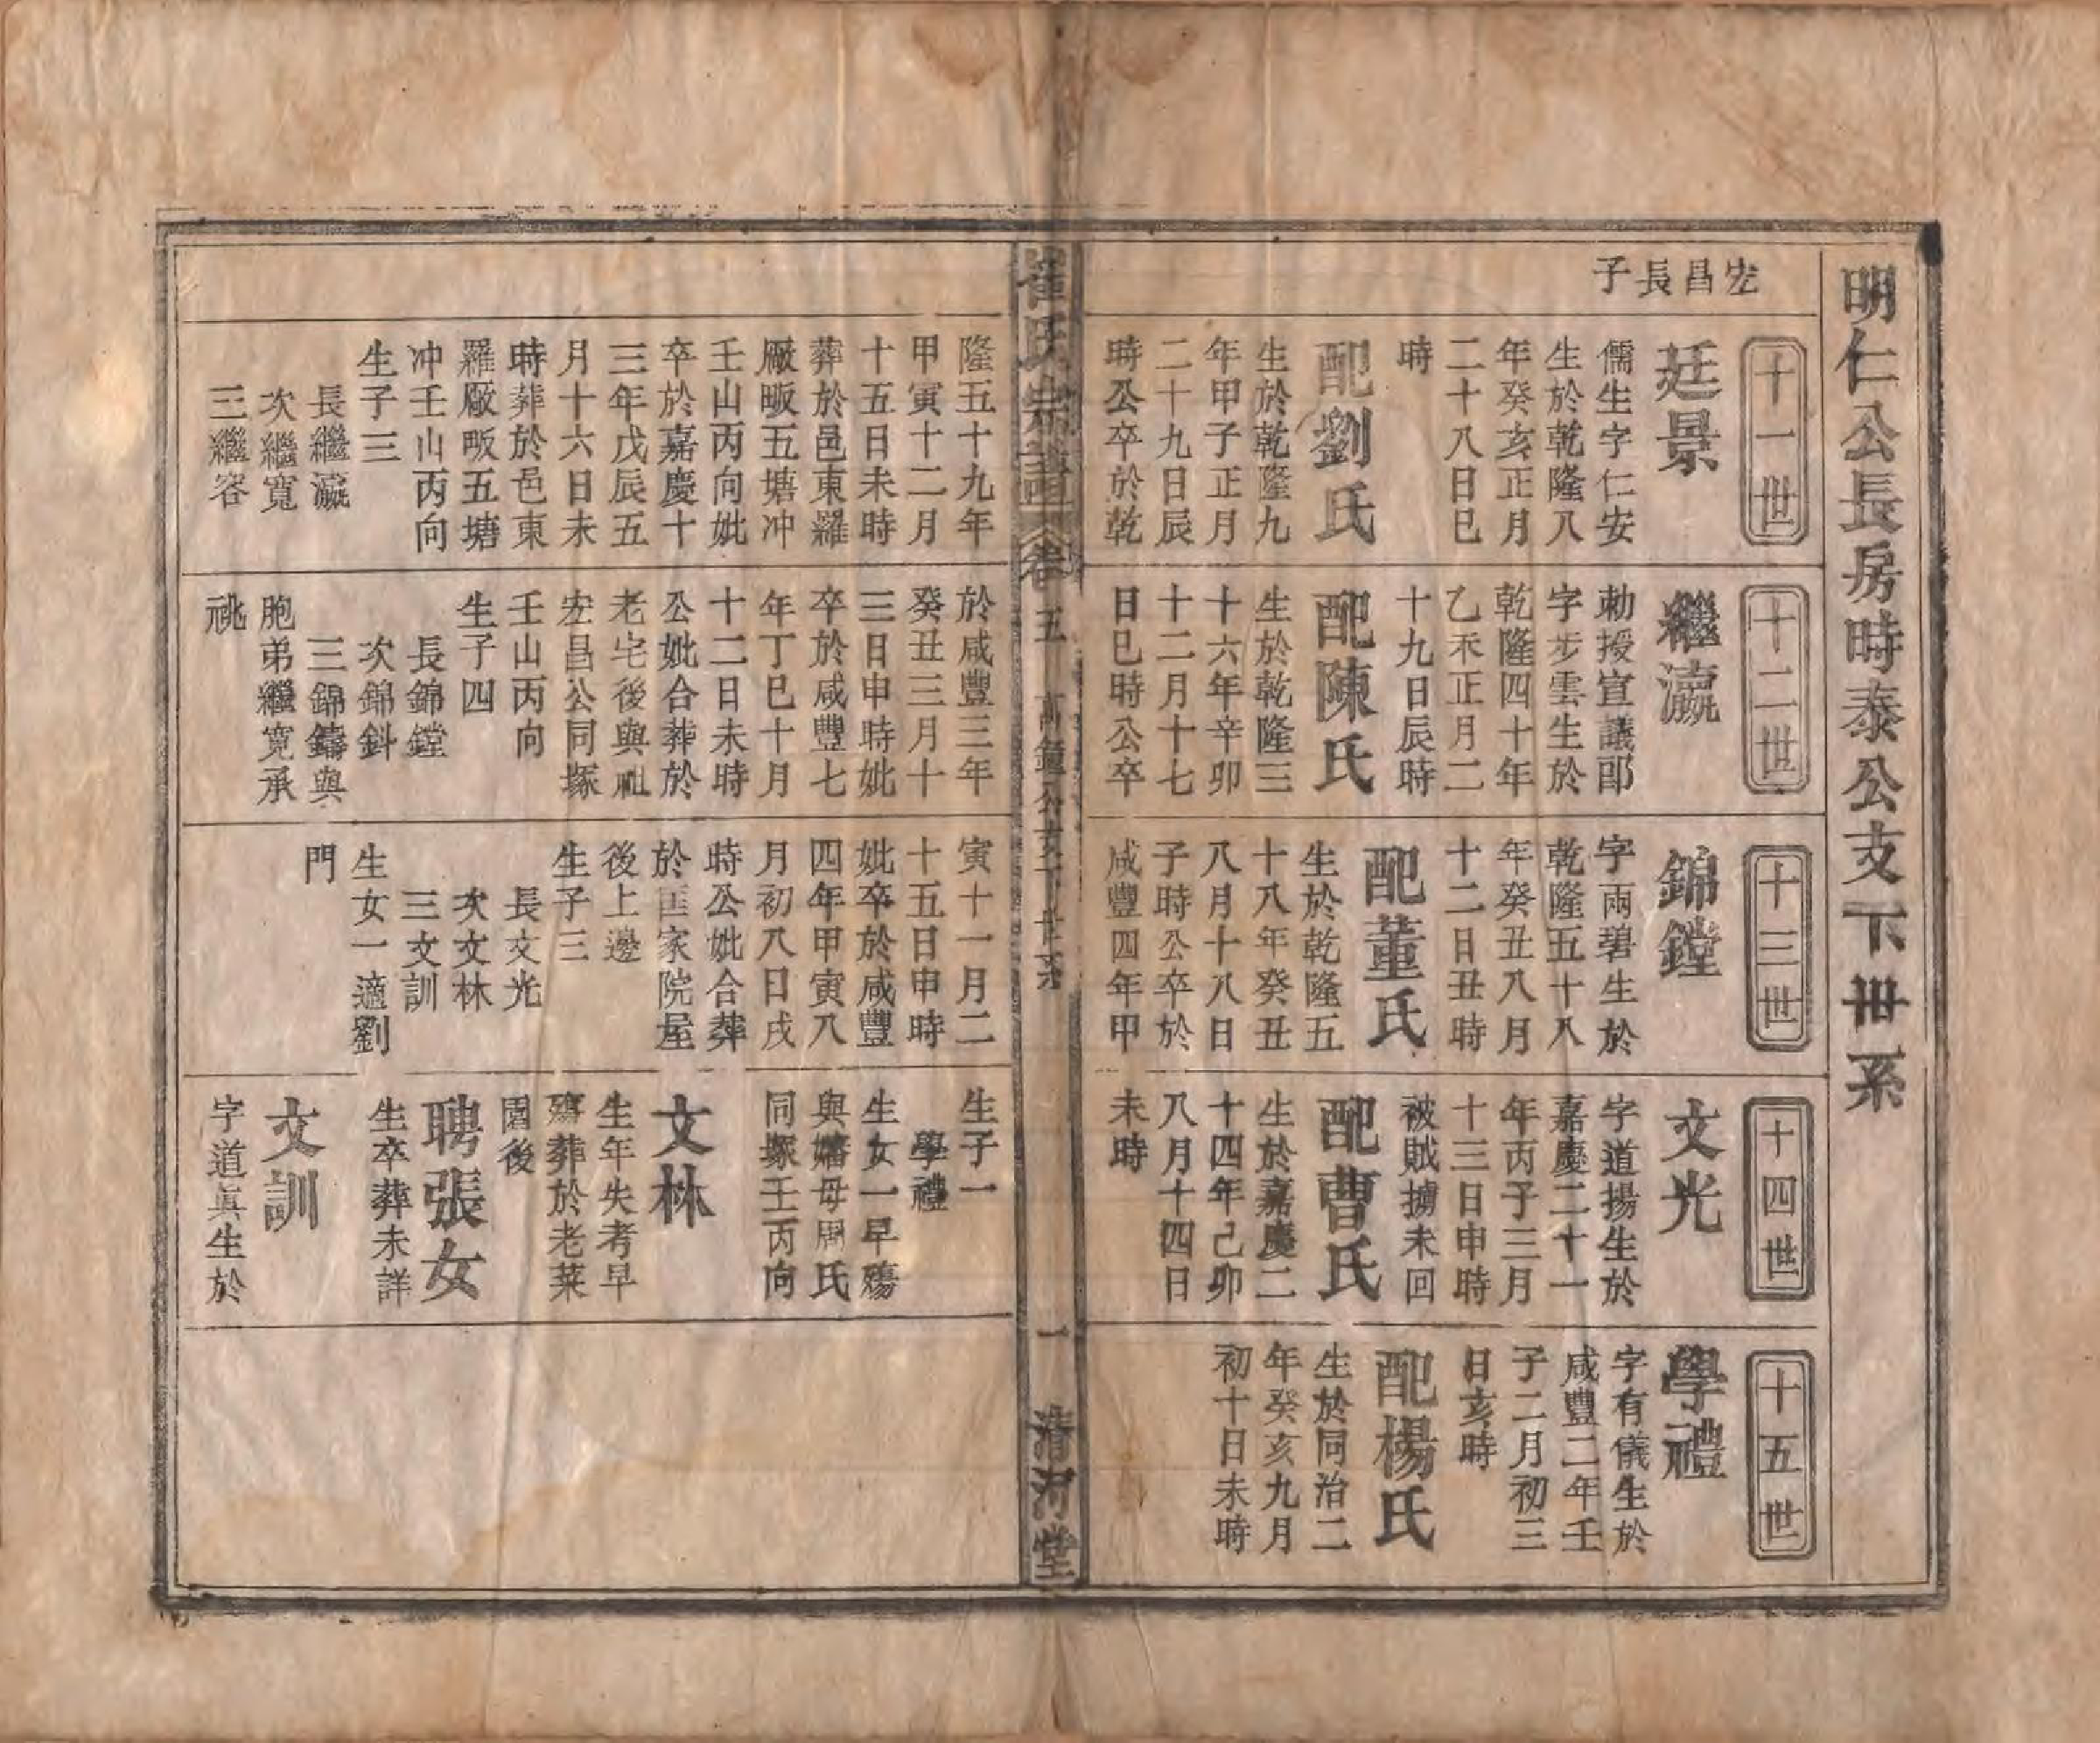 明仁公長房時泰公支下卅系
宏昌長子
十一世
廷景
儒生字仁安
生於乾隆八
年癸亥正月
二十八日巳
時
配劉氏
生於乾隆九
年甲子正月
二十九日辰
時公卒於乾
隆五十九年
甲寅十二月
十五日未時
葬於邑東羅
厫畈五塘冲
壬山丙向妣
卒於嘉慶十
三年戊辰五
月十六日未
時葬於邑東
羅厫畈五塘
冲壬山丙向
生子三
長繼瀛
次繼寬
三繼容
十二世
繼瀛
勅授宣議郎
字步雲生於
乾隆四十年
乙未正月二
十九日辰時
配陳氏
生於乾隆三
十六年辛卯
十二月十七
日巳時公卒
於咸豐三年
癸丑三月十
三日申時妣
卒於咸豐七
年丁巳十月
十二日未時
公妣合葬於
老宅後與祖
宏昌公同塚
壬山丙向
生子四
長錦鏜
次錦鈄
三錦鑄與
胞弟繼寬承
祧
十三世
錦鏜
字兩碧生於
乾隆五十八
年癸丑八月
十二日丑時
配董氏
生於乾隆五
十八年癸丑
八月十八日
子時公卒於
咸豐四年甲
寅十一月二
十五日申時
妣卒於咸豐
四年甲寅八
月初八日戌
時公妣合葬
於匡家院屋
後上邊
生子三
長文光
次文林
三文訓
生女一適劉
門
十四世
文光
字道揚生於
嘉慶二十一
年丙子三月
十三日申時
被賊擄未回
配曹氏
生於嘉慶二
十四年己卯
八月十四日
未時
生子一
學禮
生女一早殤
與嬸母周氏
同塚壬丙向
文林
生年失考早
殤葬於老菜
園後
聘張女
生卒葬未詳
文訓
字道眞生於
十五世
學禮
字有儀生於
咸豐二年壬
子二月初三
日亥時
配楊氏
生於同治二
年癸亥九月
初十日未時
崔氏宗譜
卷五
萬鍾公支下世系
一
清河堂